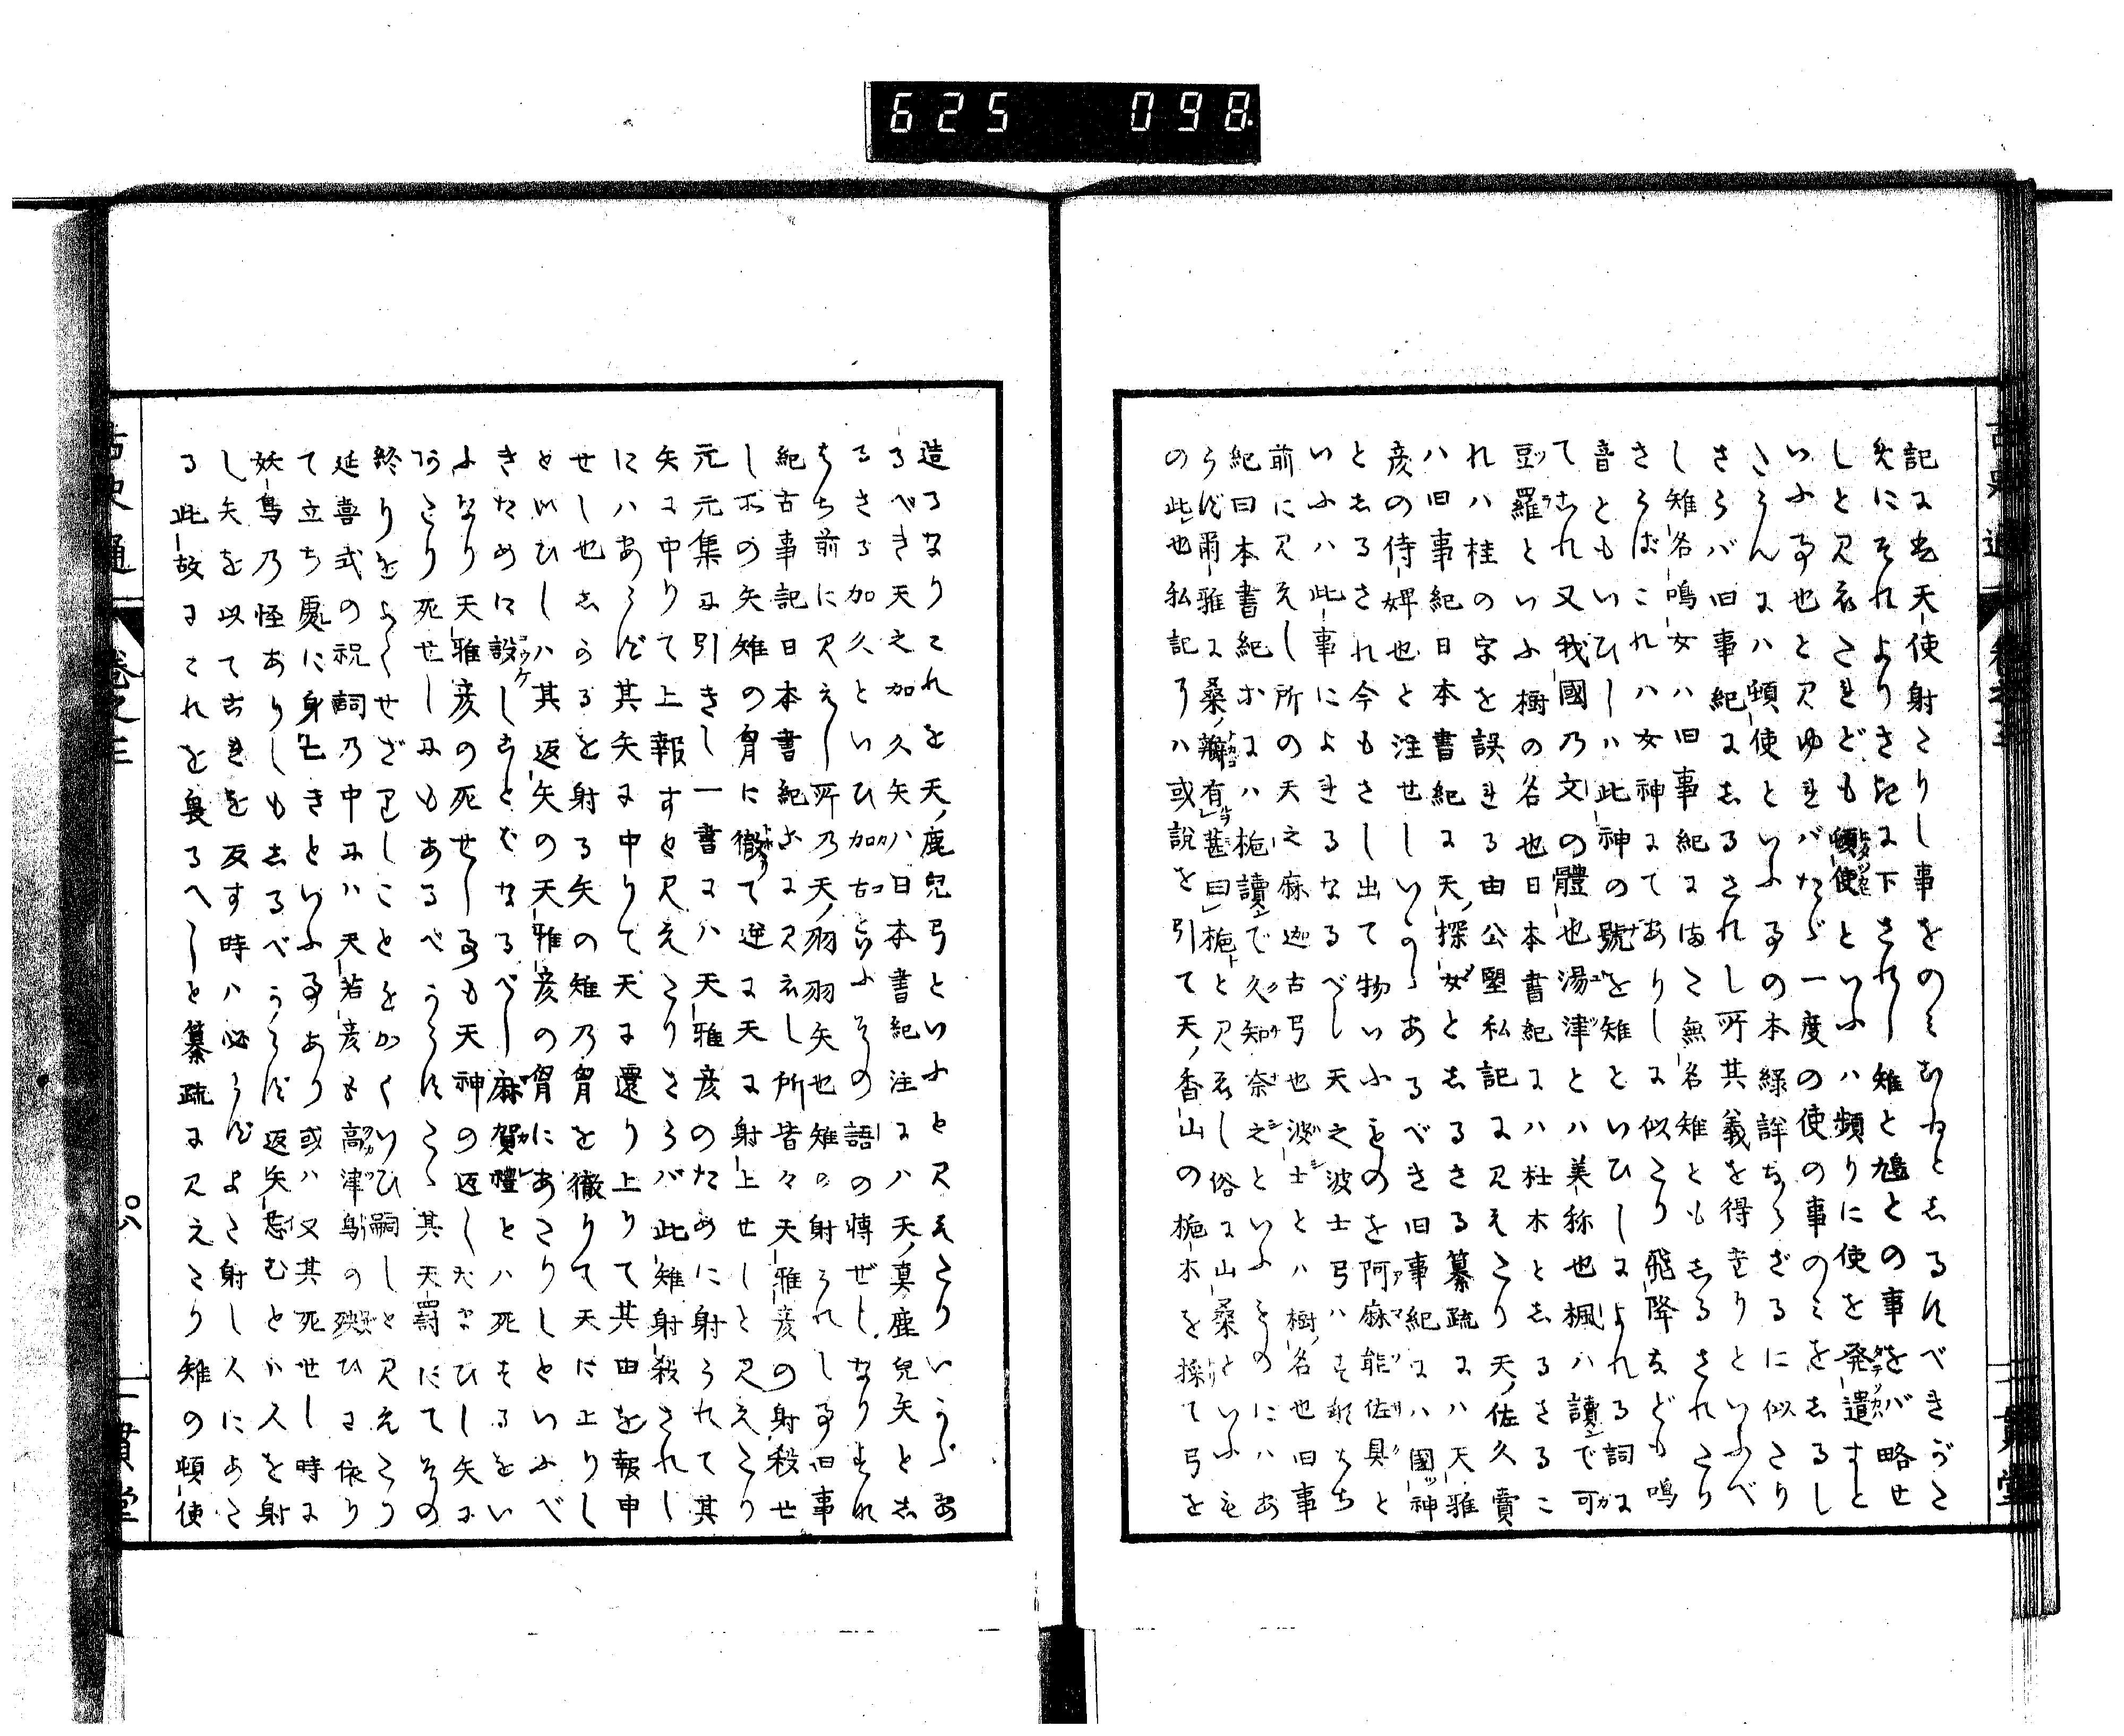 625 098
古史通
卷之三
二貫堂
記に出天使射たりし事をのミむねとしるすべきがた
めにそれよりさきに下されし雉と鳩との事をバ略せ
しと見えたれども頓使といふハ頻りに使を発遣すと
いふ事也と見ゆれバたゞ一度の使の事のミをしるし
たらんにハ頓使といふ事の本縁詳ならざるに似たり
さらバ旧事紀にしるされし所其義を得たりといふべ
し雉名鳴女ハ旧事紀にはた無名雉ともしるされたり
さらばこれハ女神にてありしに似たり飛降なども鳴
音ともいひしハ此神の號を雉といひしによれる詞に
てこれ又我國乃文の體也湯津とハ美称也楓ハ讀で可
豆羅といふ樹の名也日本書紀にハ杜木としるさるこ
れハ桂の字を誤れる由公望私記に見えたり天ノ佐久賣
ハ旧事紀日本書紀に天ノ探女としるさる纂疏にハ天雅
彦の侍婢也と注せしいかゞあるべき旧事紀にハ國神
としるされ今もさし出て物いふものを阿麻能佐具と
いふハ此事によれるなるべし天之波士弓ハすなはち
前に見えし所の天之麻迦古弓也波士とハ樹ノ名也旧事
紀曰本書紀等にハ梔讀で久知奈之といふものにハあ
らず爾雅に桑ノ辨有葚曰梔と見えし俗に山桑といふも
の此也私記にハ或說を引て天ノ香山の梔木を採て弓を
造るなりこれを天ノ鹿兒弓といふと見えたりいかゞあ
るべき天之加久矢ハ日本書紀注にハ天ノ真鹿兒矢とし
るさる加久といひ加古といふその語の轉ぜしなりすな
はち前に見えし所乃天ノ羽羽矢也雉の射られし事旧事
紀古事記日本書紀等に見えし所皆々天雅彦の射殺せ
し所の矢雉の胷に徹て逆に天に射上せしと見えたり
元元集に引きし一書にハ天雅彦のために射られて其
矢に中りて上報すと見えたりさらバ此雉射殺されし
にハあらず其矢に中りて天に還り上りて其由を報申
せし也しかるを射る矢の雉乃胷を徹りて天に上りし
といひしハ其返矢の天雅彦の胷にあたりしといふべ
きために設しことばなるべし麻賀禮とハ死するをい
ふなり天雅彦の死せし事も天神の返し玉ひし矢に
あたり死せしにもあるべからずたゞ其天罰にてその
終りをよくせざりしことをかくいひ嗣しと見えたり
延喜式の祝詞乃中にハ天若彦も高津鳥の殃ひに依り
て立ち處に身亡きといふ事あり或ハ又其死せし時に
妖鳥乃怪ありしもしるべからず返矢恐むとハ人を射
し矢を以て古きを反す時ハ必らずよく射し人にあた
る此故にこれを畏るへしと纂疏に見えたり雉の頓使
古史通
卷之三
〇八
二貫堂